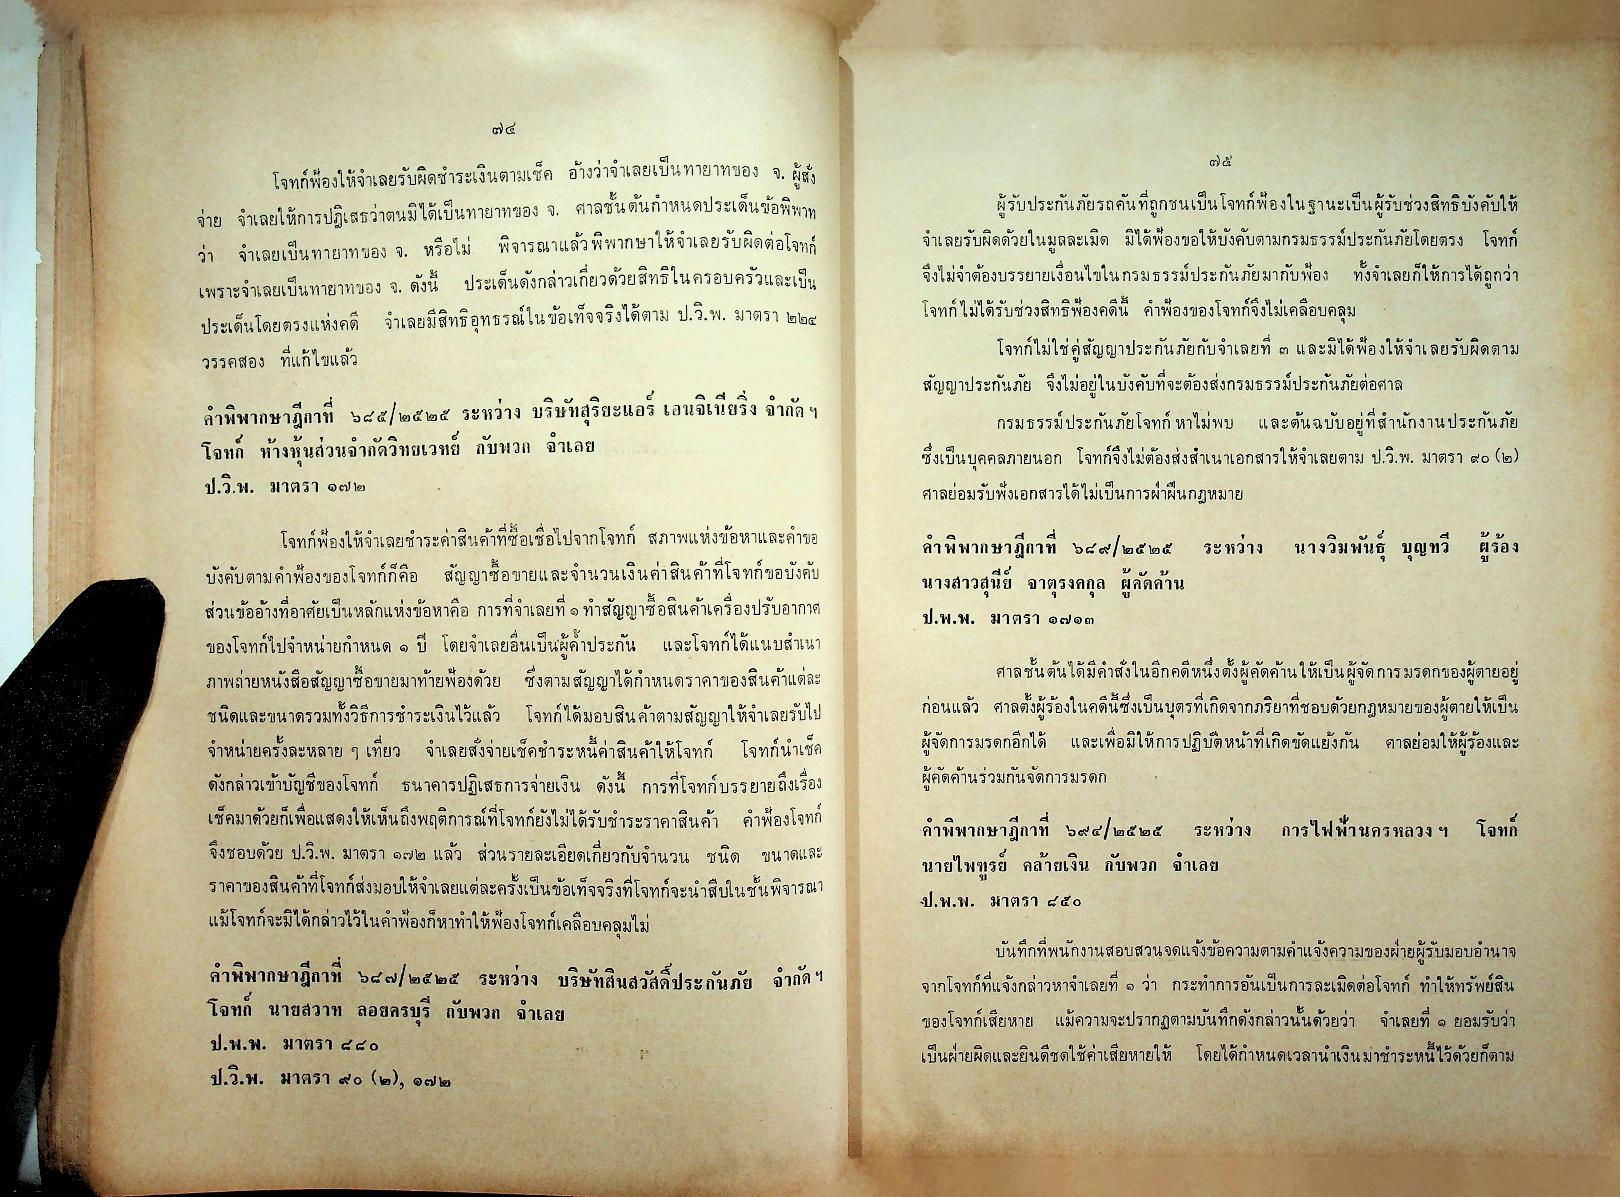 ๗๔
โจทก์ฟ้องให้จำเลยรับผิดชำระเงินตามเช็ค อ้างว่าจำเลยเป็นทายาทของ จ. ผู้สั่ง
จ่าย จำเลยให้การปฏิเสธว่าตนมิได้เป็นทายาทของ จ. ศาลชั้นต้นกำหนดประเด็นข้อพิพาท
ว่า จำเลยเป็นทายาทของ จ. หรือไม่ พิจารณาแล้วพิพากษาให้จำเลยรับผิดต่อโจทก์
เพราะจำเลยเป็นทายาทของ จ. ดังนี้ ประเด็นดังกล่าวเกี่ยวด้วยสิทธิในครอบครัวและเป็น
ประเด็นโดยตรงแห่งคดี จำเลยมีสิทธิอุทธรณ์ในข้อเท็จจริงได้ตาม ป.วิ.พ. มาตรา ๒๒๔
วรรคสอง ที่แก้ไขแล้ว
คำพิพากษาฎีกาที่ ๖๘๕/๒๕๒๕ ระหว่าง บริษัทสุริยะแอร์ เอนจิเนียริ่ง จำกัด ฯ
โจทก์ ห้างหุ้นส่วนจำกัดวิทยเวทย์ กับพวก จำเลย
ป.วิ.พ. มาตรา ๑๗๒
โจทก์ฟ้องให้จำเลยชำระค่าสินค้าที่ซื้อเชื่อไปจากโจทก์ สภาพแห่งข้อหาและคำขอ
บังคับตามคำฟ้องของโจทก์ก็คือ สัญญาซื้อขายและจำนวนเงินค่าสินค้าที่โจทก์ขอบังคับ
ส่วนข้ออ้างที่อาศัยเป็นหลักแห่งข้อหาคือ การที่จำเลยที่ ๑ ทำสัญญาซื้อสินค้าเครื่องปรับอากาศ
ของโจทก์ไปจำหน่ายกำหนด ๑ ปี โดยจำเลยอื่นเป็นผู้ค้ำประกัน และโจทก์ได้แนบสำเนา
ภาพถ่ายหนังสือสัญญาซื้อขายมาท้ายฟ้องด้วย ซึ่งตามสัญญาได้กำหนดราคาของสินค้าแต่ละ
ชนิดและขนาดรวมทั้งวิธีการชำระเงินไว้แล้ว โจทก์ได้มอบสินค้าตามสัญญาให้จำเลยรับไป
จำหน่ายครั้งละหลาย ๆ เที่ยว จำเลยสั่งจ่ายเช็คชำระหนี้ค่าสินค้าให้โจทก์ โจทก์นำเช็ค
ดังกล่าวเข้าบัญชีของโจทก์ ธนาคารปฏิเสธการจ่ายเงิน ดังนี้ การที่โจทก์บรรยายถึงเรื่อง
เช็คมาด้วยก็เพื่อแสดงให้เห็นถึงพฤติการณ์ที่โจทก์ยังไม่ได้รับชำระราคาสินค้า คำฟ้องโจทก์
จึงชอบด้วย ป.วิ.พ. มาตรา ๑๗๒ แล้ว ส่วนรายละเอียดเกี่ยวกับจำนวน ชนิด ขนาดและ
ราคาของสินค้าที่โจทก์ส่งมอบให้จำเลยแต่ละครั้งเป็นข้อเท็จจริงที่โจทก์จะนำสืบในชั้นพิจารณา
แม้โจทก์จะมิได้กล่าวไว้ในคำฟ้องก็หาทำให้ฟ้องโจทก์เคลือบคลุมไม่
คำพิพากษาฎีกาที่ ๖๘๗/๒๕๒๕ ระหว่าง บริษัทสินสวัสดิ์ประกันภัย จำกัด ฯ
โจทก์ นายสวาท ลอยครบุรี กับพวก จำเลย
ป.พ.พ. มาตรา ๘๘๐
ป.วิ.พ. มาตรา ๙๐ (๒), ๑๗๒
๗๕
ผู้รับประกันภัยรถคันที่ถูกชนเป็นโจทก์ฟ้องในฐานะเป็นผู้รับช่วงสิทธิบังคับให้
จำเลยรับผิดด้วยในมูลละเมิด มิได้ฟ้องขอให้บังคับตามกรมธรรม์ประกันภัยโดยตรง โจทก์
จึงไม่จำต้องบรรยายเงื่อนไขในกรมธรรม์ประกันภัยมากับฟ้อง ทั้งจำเลยก็ให้การได้ถูกว่า
โจทก์ไม่ได้รับช่วงสิทธิฟ้องคดีนี้ คำฟ้องของโจทก์จึงไม่เคลือบคลุม
โจทก์ไม่ใช่คู่สัญญาประกันภัยกับจำเลยที่ ๓ และมิได้ฟ้องให้จำเลยรับผิดตาม
สัญญาประกันภัย จึงไม่อยู่ในบังคับที่จะต้องส่งกรมธรรม์ประกันภัยต่อศาล
กรมธรรม์ประกันภัยโจทก์หาไม่พบ และต้นฉบับอยู่ที่สำนักงานประกันภัย
ซึ่งเป็นบุคคลภายนอก โจทก์จึงไม่ต้องส่งสำเนาเอกสารให้จำเลยตาม ป.วิ.พ. มาตรา ๙๐ (๒)
ศาลย่อมรับฟังเอกสารได้ไม่เป็นการฝ่าฝืนกฎหมาย
คำพิพากษาฎีกาที่ ๖๘๙/๒๕๒๕ ระหว่าง นางวิมพันธุ์ บุญทวี ผู้ร้อง
นางสาวสุนีย์ จาตุรงคกุล ผู้คัดค้าน
ป.พ.พ. มาตรา ๑๗๑๓
ศาลชั้นต้นได้มีคำสั่งในอีกคดีหนึ่งตั้งผู้คัดค้านให้เป็นผู้จัดการมรดกของผู้ตายอยู่
ก่อนแล้ว ศาลตั้งผู้ร้องในคดีนี้ซึ่งเป็นบุตรที่เกิดจากภริยาที่ชอบด้วยกฎหมายของผู้ตายให้เป็น
ผู้จัดการมรดกอีกได้ และเพื่อมิให้การปฏิบัติหน้าที่เกิดขัดแย้งกัน ศาลย่อมให้ผู้ร้องและ
ผู้คัดค้านร่วมกันจัดการมรดก
คำพิพากษาฎีกาที่ ๖๙๔/๒๕๒๕ ระหว่าง การไฟฟ้านครหลวง ฯ โจทก์
นายไพฑูรย์ คล้ายเงิน กับพวก จำเลย
ป.พ.พ. มาตรา ๘๕๐
บันทึกที่พนักงานสอบสวนจดแจ้งข้อความตามคำแจ้งความของฝ่ายผู้รับมอบอำนาจ
จากโจทก์ที่แจ้งกล่าวหาจำเลยที่ ๑ ว่า กระทำการอันเป็นการละเมิดต่อโจทก์ ทำให้ทรัพย์สิน
ของโจทก์เสียหาย แม้ความจะปรากฏตามบันทึกดังกล่าวนั้นด้วยว่า จำเลยที่ ๑ ยอมรับว่า
เป็นฝ่ายผิดและยินดีชดใช้ค่าเสียหายให้ โดยได้กำหนดเวลานำเงินมาชำระหนี้ไว้ด้วยก็ตาม